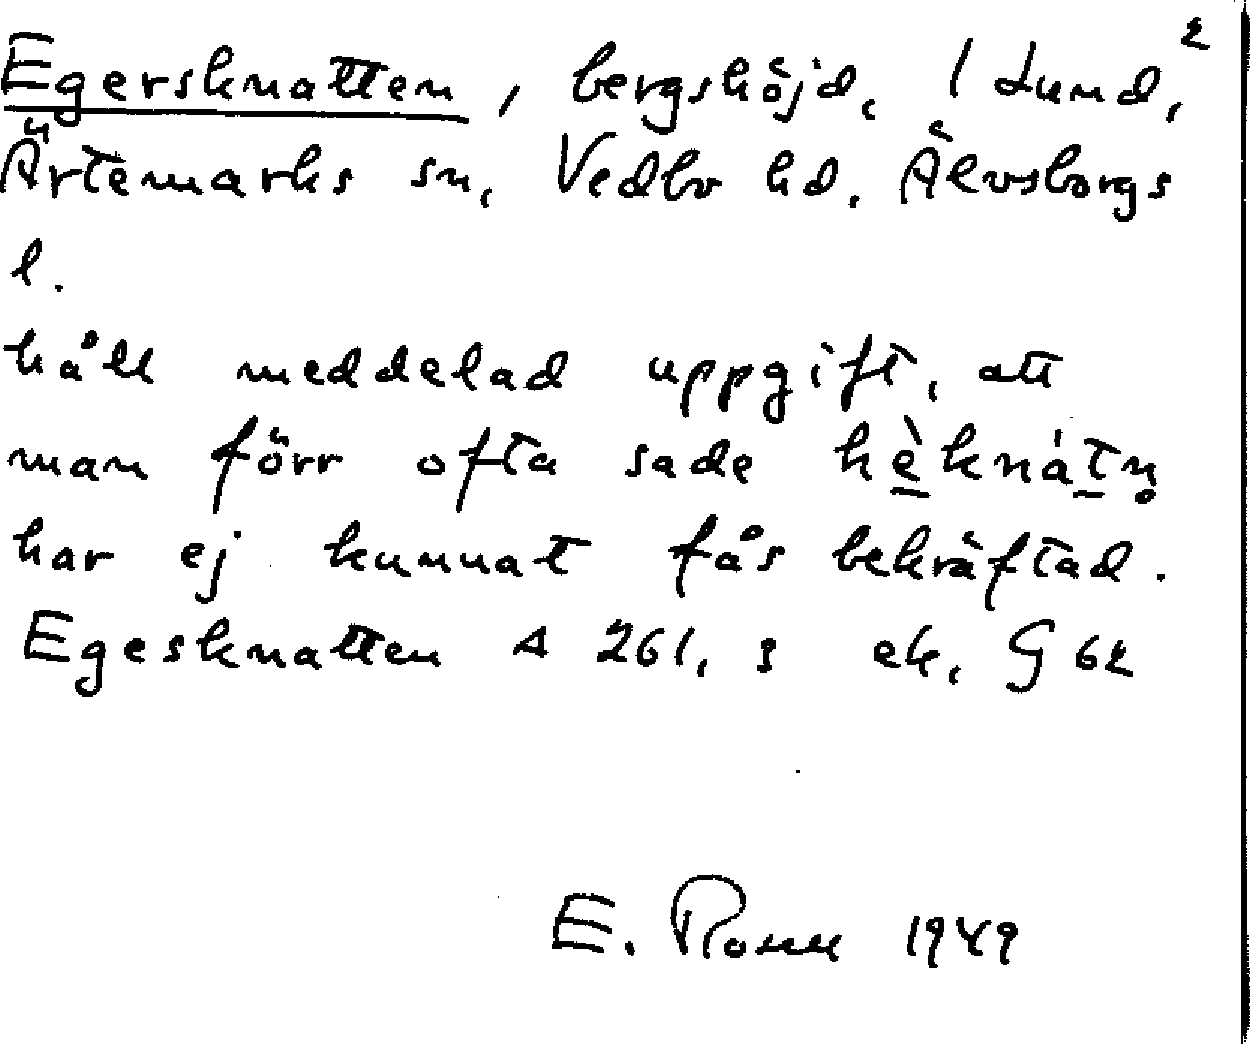 Egersknatten, bergshöjd, 1 Lund, 2
Ärtemarks sn, Vedbo hd, Älvsborgs
l.
håll meddelad uppgift, att
man förr ofta sade hèknátn̥
har ej kunnat fås bekräftad.
Egesknatten Δ 261, s ek, G 62
E. Ronn 1949